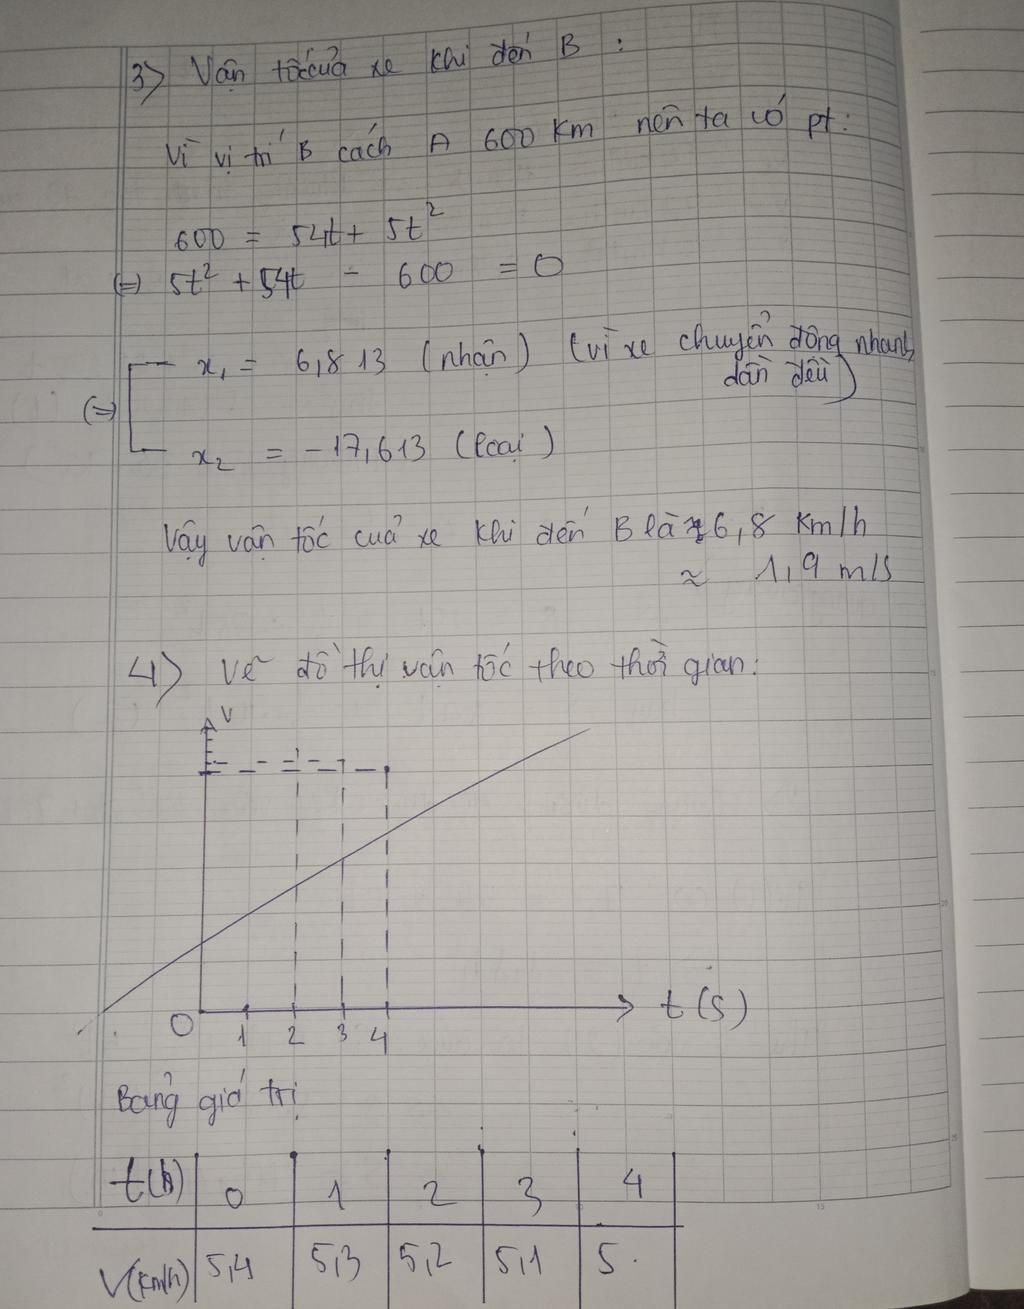 3> Vận tốc của xe khi đến B :
Vì vị trí B cách A 600 km nên ta có pt:
600 = 54t + 5t²
(=) 5t² + 54t - 600 = 0
x₁ = 6,813 (nhận) (vì xe chuyển động nhanh
dần đều)
(=)
x₂ = -17,613 (loại)
Vậy vận tốc của xe khi đến B là 6,8 km/h
≈ 1,9 m/s
4) Vẽ đồ thị vận tốc theo thời gian:
V
O 1 2 3 4 t(s)
Bảng giá trị
t(h) 0 1 2 3 4
V(km/h) 5,4 5,3 5,2 5,1 5.